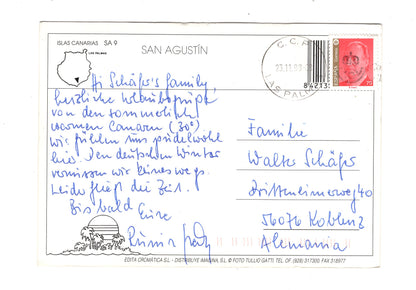 ISLAS CANARIAS SA 9
LAS PALMAS
SAN AGUSTÍN
C. C. P.
23.11.93
LAS PALMAS
84213
ESPAÑA
Hi Schäfer's family
herzliche Urlaubsgrüße
von den sommerlich
warmen Canaren (30°)
wir fühlen uns pudelwohl
hier. Den deutschen Winter
vermissen wir keineswegs.
Leider fliegt die Zeit.
Bis bald
Eure
Familie
Walter Schäfer
56076 Koblenz
Alemania
EDITA CROMATICA S.L. - DISTRIBUYE AMAGUA, S.L. © FOTO TULLIO GATTI. TEL. (928) 317300 FAX 318977